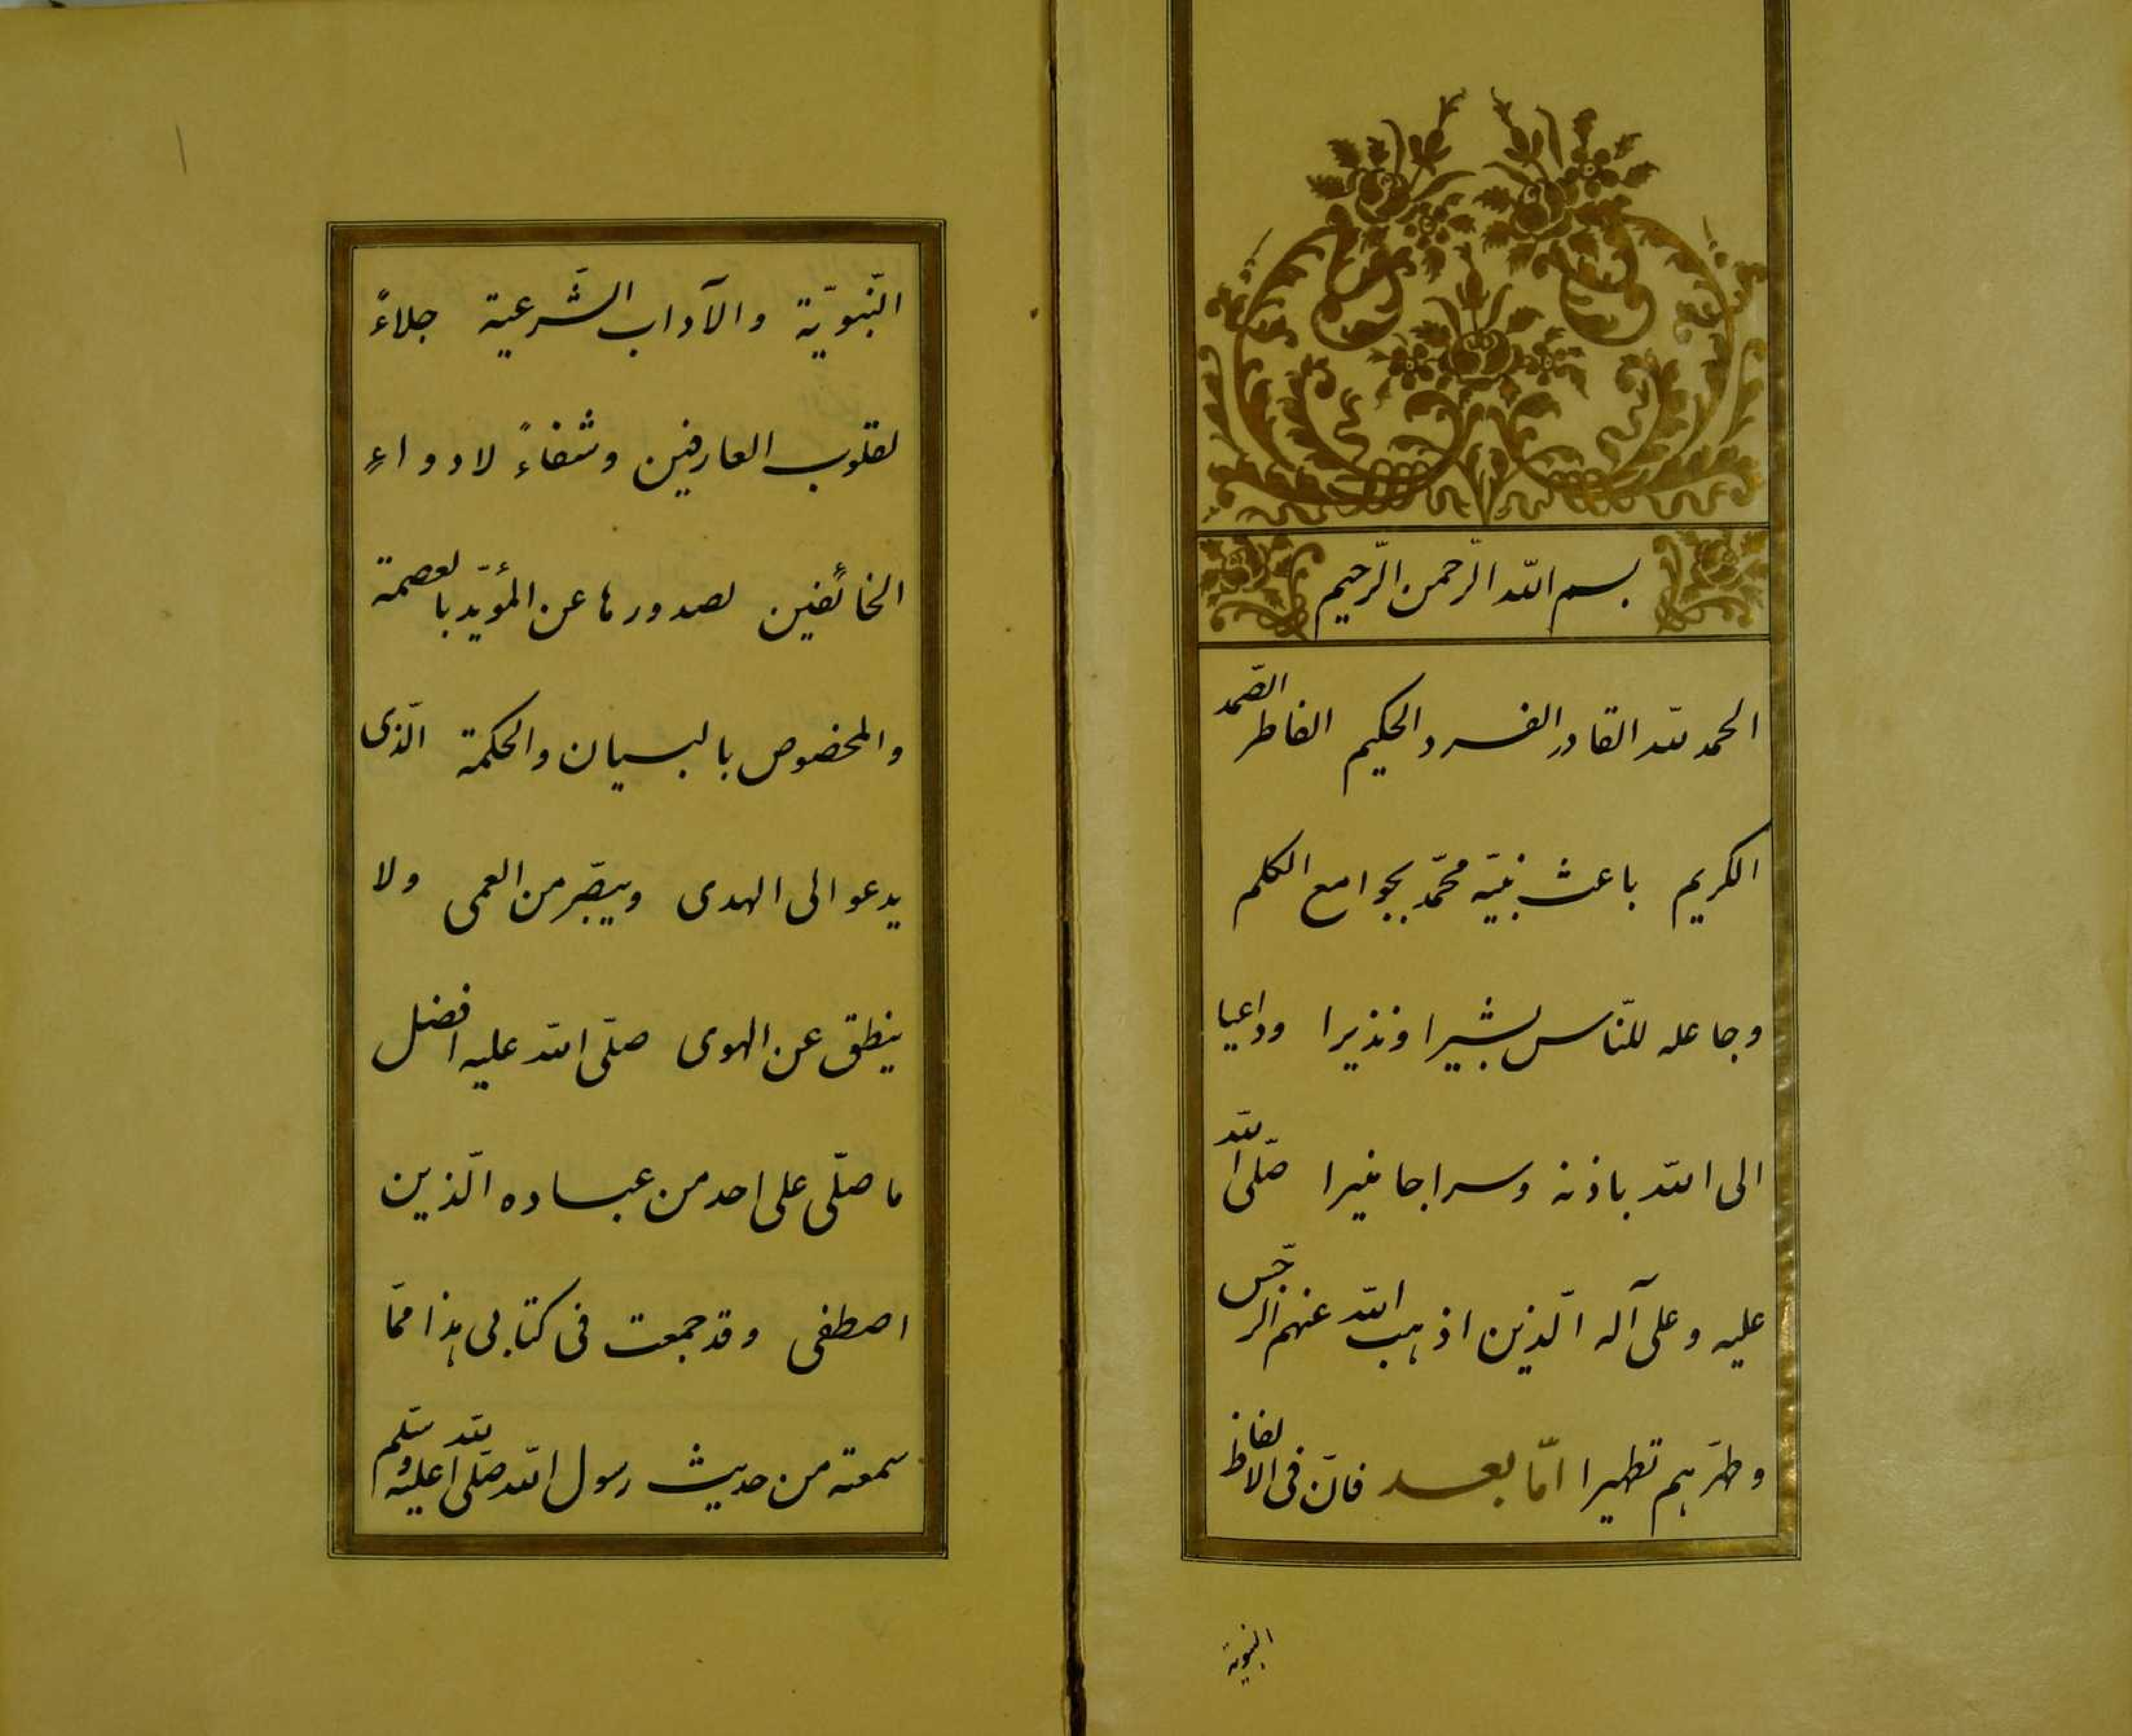 بسم الله الرّحمن الرّحيم
الحمد لله القادر الفرد الحكيم الفاطر الصّمد
الكريم باعث نبيّه محمّد بجوامع الكلم
وجاعله للنّاس بشيرا ونذيرا وداعيا
الى الله باذنه وسراجا منيرا صلّى الله
عليه وعلى آله الّذين اذهب الله عنهم الرّجس
وطهّرهم تطهيرا امّا بعد فانّ فى الالفاظ
النبوية
النّبويّة والآداب الشّرعية جلاءً
لقلوب العارفين وشفاءً لادواءِ
الخائفين لصدورها عن المؤيّد بالعصمة
والمخصوص بالبيان والحكمة الّذى
يدعو الى الهدى ويبصّر من العمى ولا
ينطق عن الهوى صلّى الله عليه افضل
ما صلّى على احد من عباده الّذين
اصطفى وقد جمعت فى كتابى هذا ممّا
سمعته من حديث رسول الله صلّى الله عليه وسلّم